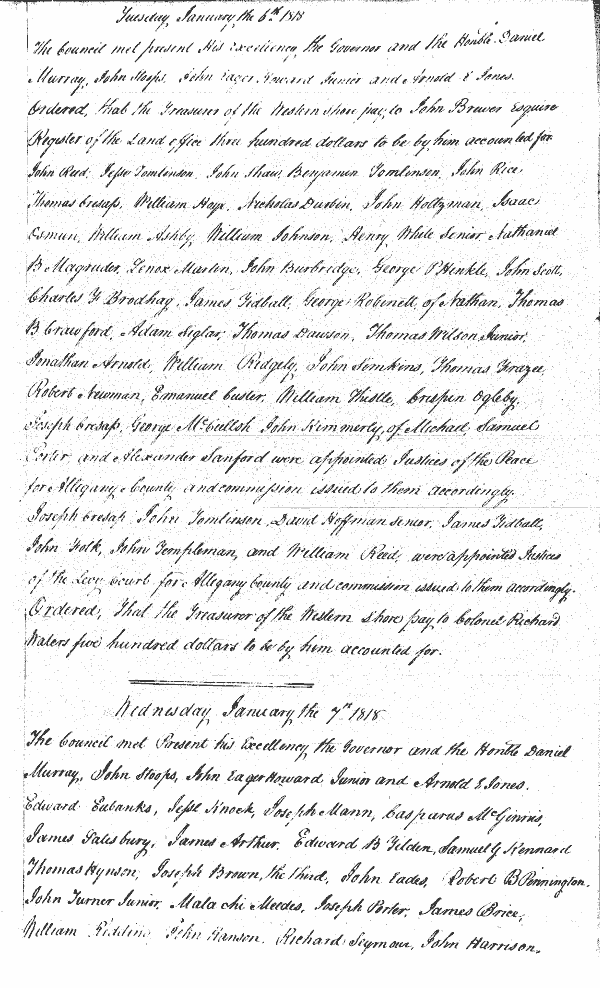 Tuesday, January the 6th 1818
The Council met present His Excellency the Governor and the Honble Daniel
Murray, John Stoops, John Eager Howard Junior and Arnold E Jones.
Ordered, that the Treasurer of the Western shore pay to John Brewer Esquire
Register of the Land office three hundred dollars to be by him accounted for
John Reed, Jesse Tomlinson, John Shaw, Benjamin Tomlinson, John Rice
Thomas Cresap, William Hays, Nicholas Durbin, John Holtzman, Isaac
Osmun, William Ashby, William Johnson, Henry White Senior, Nathaniel
B Magruder, Lenox Martin, John Burbridge, George P Hinkle, John Scott,
Charles F Brodhag, James Tidball, George Robinett, of Nathan, Thomas
B Crawford, Adam Siglar, Thomas Dawson, Thomas Wilson Junior,
Jonathan Arnold, William Ridgely, John Simkins, Thomas Frazee
Robert Newman, Emanuel Custer, William Thistle, Crispen Ogleby,
Joseph Cresap, George McCulloh John Kimmerly, of Michael, Samuel
and Alexander Sanford were appointed Justices of the Peace
for Allegany County and commission issued to them accordingly.
Joseph Cresap John Tomlinson, David Hoffman senior, James Tidball,
John Folk, John Templeman, and William Reed, were appointed Justices
of the Levy Court for Allegany County and commission issued to them accordingly.
Ordered, That the Treasurer of the Western shore pay to Colonel Richard
Waters five hundred dollars to be by him accounted for.
Wednesday, January the 7th 1818
The Council met Present his Excellency the Governor and the Honble Daniel
Murray, John Stoops, John Eager Howard Junior and Arnold E Jones.
Edward Eubanks, Jesse Knock, Joseph Mann, Casparus McGinnis,
James Salesbury, James Arthur, Edward B Tilden, Samuel G Kennard
Thomas Hynson, Joseph Brown, the third, John Eades, Robert B Pennington,
John Turner Junior, Malachi Meedes, Joseph Porter, James Brice,
William John Hanson, Richard Seymour, John Harrison,